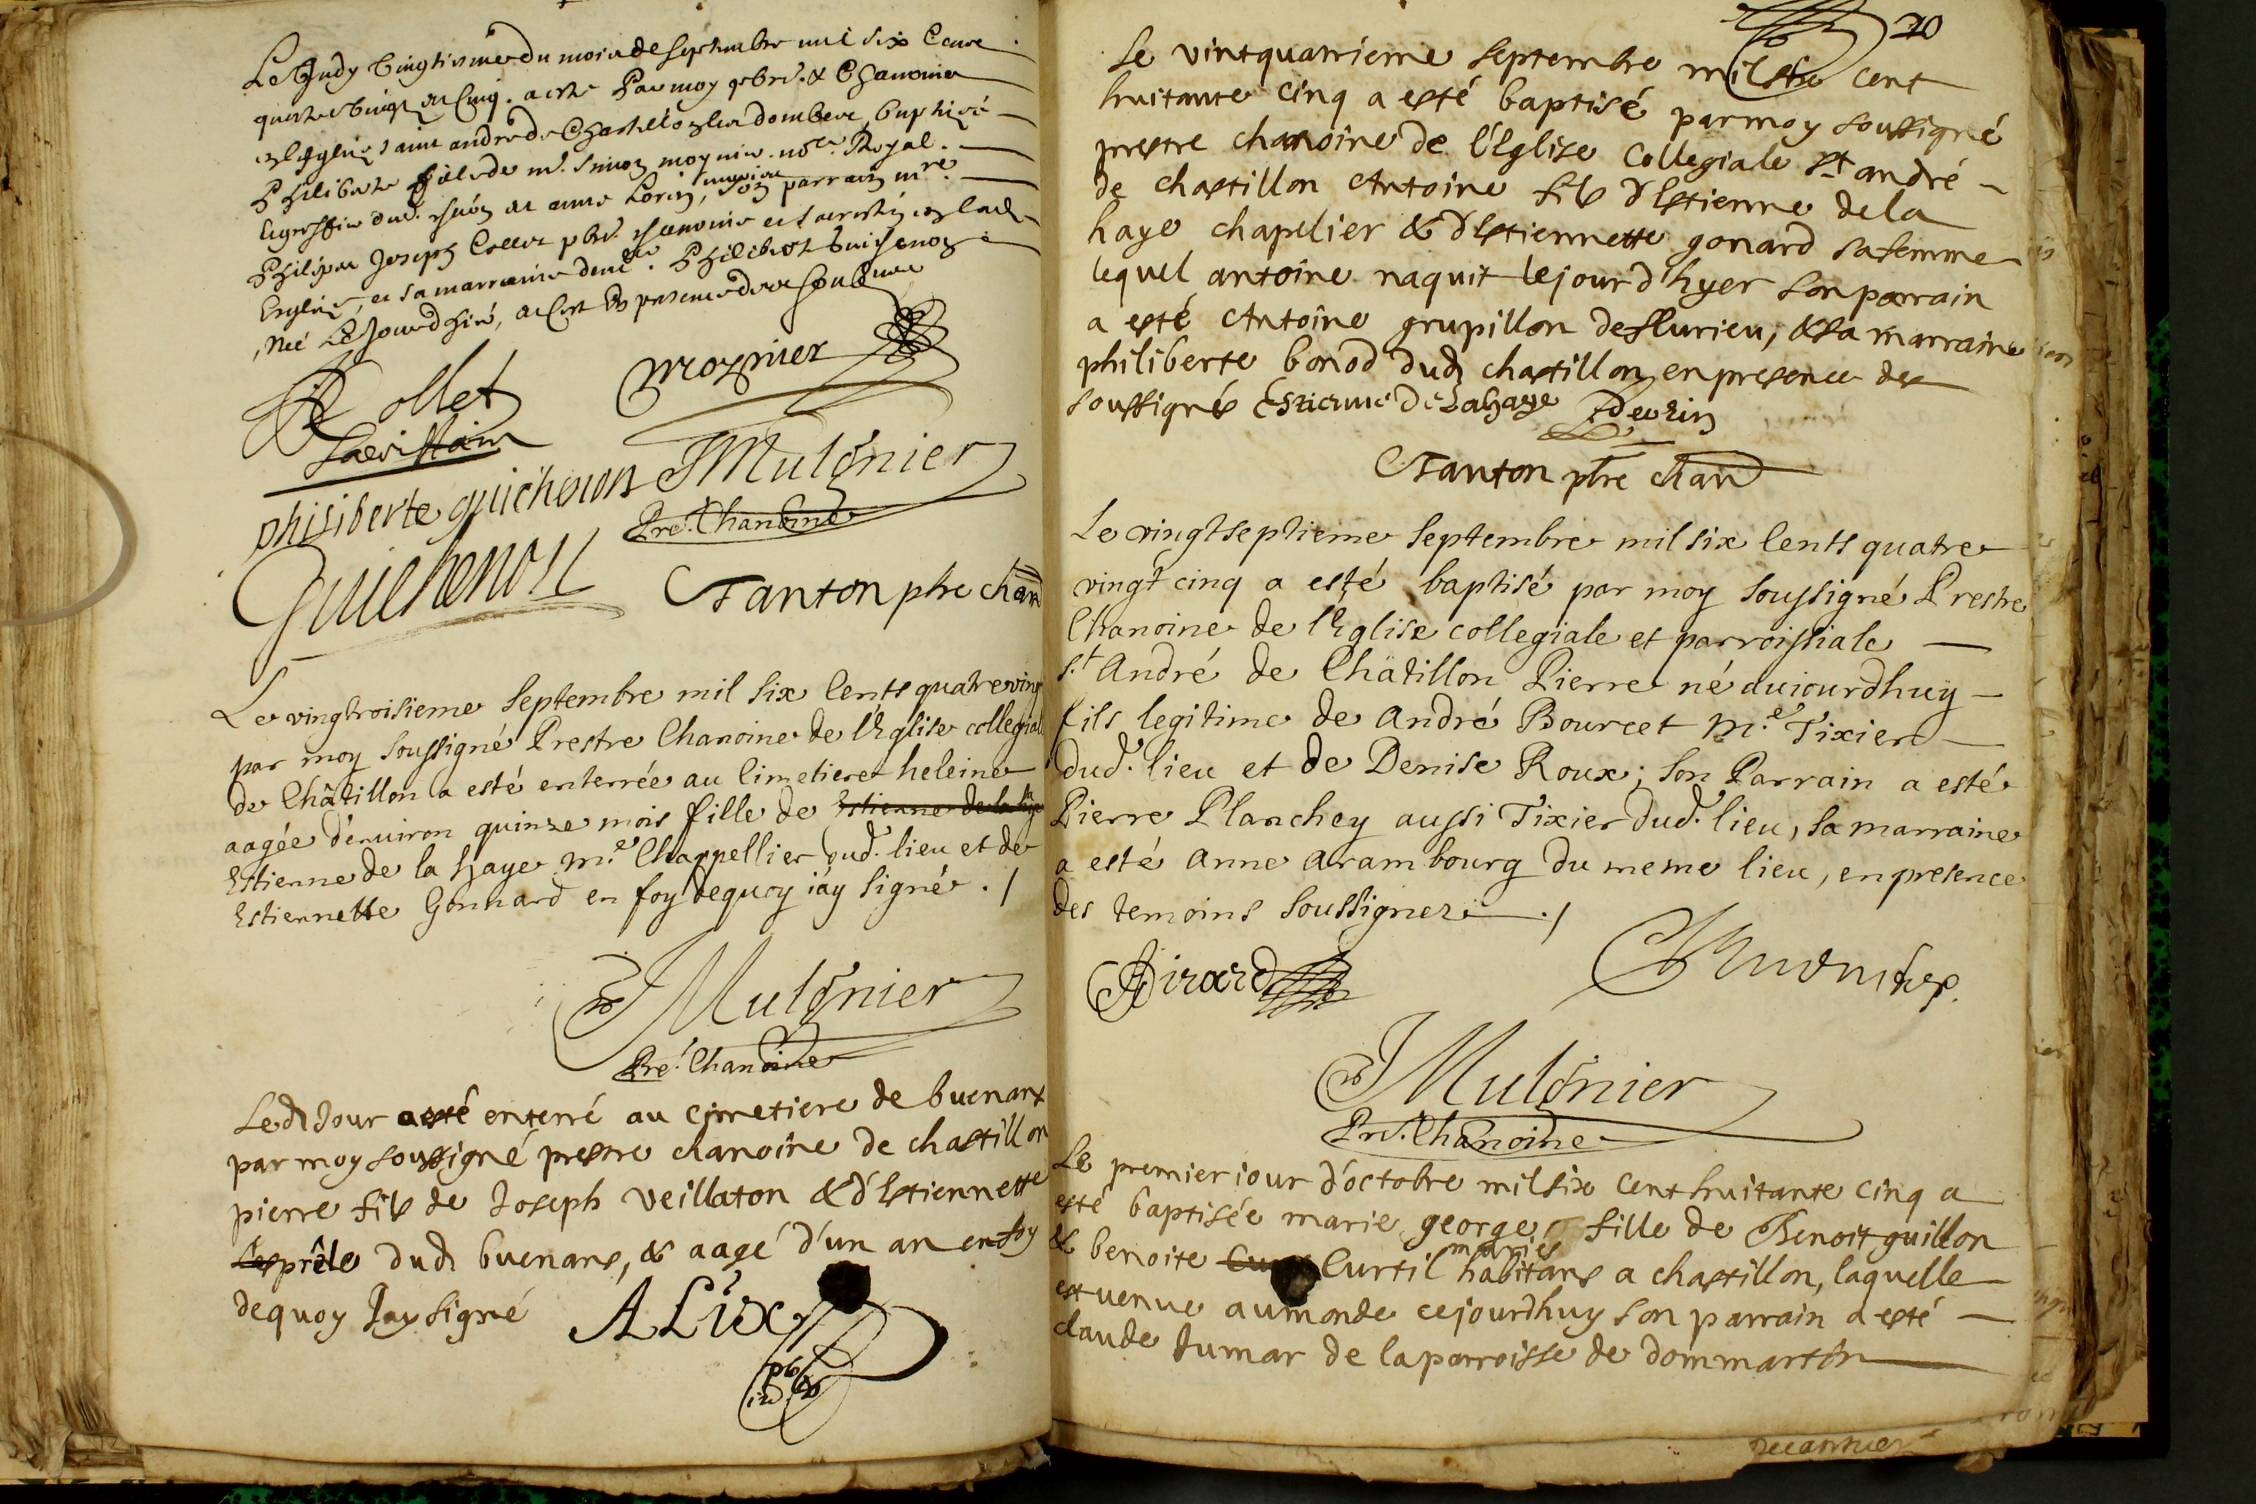 Le Judy vingtiesme du mois de septembre mil six Cent
quatre vingt et Cinq. a esté Par moy pbre. & Chanoine
en leglise saint andré de Chastillon les dombes, baptizé
Philiberte fille de mr. Simon moynier no.re Royal.
Philipe Joseph Collet pbre. chanoine et sacristin en lad.
Esglize, et sa marraine dem.lle Philiberte Guichenon
, Née Le Jourd'hier, et Ce en presence des soubs.
Collet
Moynier
Sacristain
philiberte guichenon
JMulonier
Pre. Chanoine
Guichenon
Tanton ptre chan
Le vingtroisieme Septembre mil six Cents quatre vingt
par moy Soussigné Prestre Chanoine de l'Eglise collegial
de Châtillon a esté enterrée au Cimetiere heleine
aagée d'enuiron quinze mois fille de Estienne de la haye
Estienne de la haye M.e Chappellier dud. lieu et de
Estiennette Gonnard en foy dequoy i'ay signé ./
JMulonier
Pre. Chanoine
Led Jour a esté enterré au cimetiere de buenant
par moy soussigné prestre chanoine de chastillon
pierre fils de Joseph veillaton & d'Estiennette
Lesprêle dud buenans, & aagé d'un an en foy
dequoy Jay signé ALix
20
Le vintquatrieme Septembre mil six cent
huitante cinq a esté baptisé par moy soussigné
prestre chanoine de l'Eglise Collegiale St andré
de chastillon Antoine fils d'Estienne de la
haye chapelier & d'Estiennette gonard sa femme
lequel antoine naquit le jour d'hyer son parrain
a esté Antoine grupillon de flurieu, & sa marraine
philiberte bonod dud chastillon en presence des
soussignés Estienne DeLahaye
Tanton ptre chan
Le vingtseptieme Septembre mil six Cents quatre
vingt cinq a esté baptisé par moy Soussigné Prestre
Chanoine de l'Eglise collegiale et parroissiale
S.t André de Châtillon Pierre né aujourdhuy
fils legitime de André Bourcet M.e Tixier
dud. lieu et de Denise Roux; Son Parrain a esté
Pierre Planchey aussi Tixier dud. lieu, sa marraine
a esté Anne Arambourg du meme lieu, en presence
des temoins Soussignez ./
Girard
JMulonier
Pre. Chanoine
Le premier iour d'octobre mil six cent huitante cinq a
esté baptisée marie george fille de Benoit guillon
& benoite Curtil mariés habitans a chastillon, laquelle
est venue au monde cejourdhuy son parrain a esté
claude Dumar de la parroisse de dommartin